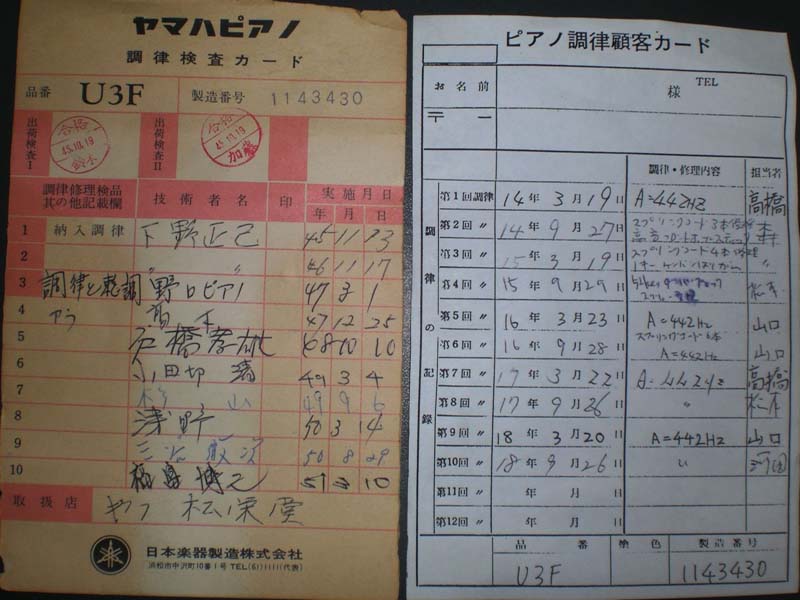 ヤマハピアノ
調律検査カード
品番 U3F 製造番号 1143430
出荷検査I 合格 45.10.19 鈴木 出荷検査II 合格 45.10.19 加藤
調律修理検品 其の他記載欄 技術者名 印 実施月日
年 月 日
1 納入調律 下野正己 45 11 23
2 〃 〃 46 11 17
3 調律と乾調 野口ピアノ 47 3 1
4 47 12 25
5 石橋孝雄 48 10 10
6 小田切 清 49 3 4
7 杉山 49 9 6
8 浅野 50 3 14
9 50 8 29
10 51 3 10
取扱店 松栄堂
日本楽器製造株式会社
浜松市中沢町10番1号 TEL(61)1111(代表)
ピアノ調律顧客カード
お名前 様 TEL
〒 ー
調律の記録 調律・修理内容 担当者
第1回調律 14年 3月 19日 A=442Hz 高橋
第2回 〃 14年 9月 27日 スプリングコード3本修理 森
第3回 〃 15年 3月 19日 スプリングコード4本修理 〃
第4回 〃 15年 9月 29日 松本
第5回 〃 16年 3月 23日 A=442Hz 山口
第6回 〃 16年 9月 28日 スプリングコード6本 A=442Hz 山口
第7回 〃 17年 3月 22日 A=442Hz 高橋
第8回 〃 17年 9月 26日 〃 松本
第9回 〃 18年 3月 20日 A=442Hz 山口
第10回 〃 18年 9月 26日 〃
第11回 〃 年 月 日
第12回 〃 年 月 日
品番 塗色 製造番号
U3F 1143430